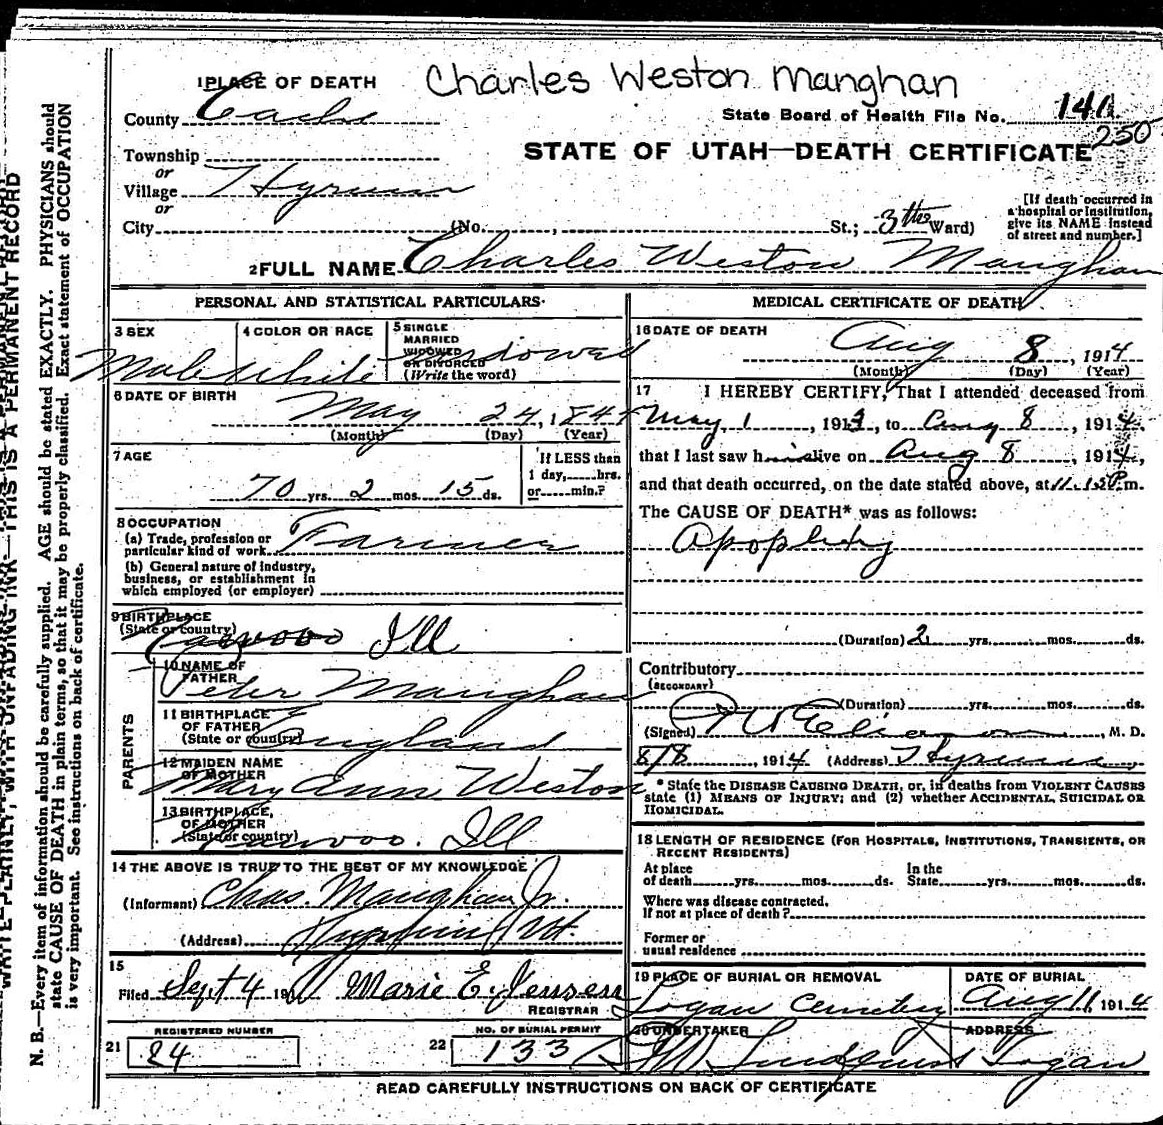 1 PLACE OF DEATH Charles Weston Manghan
County Cache State Board of Health File No. 140
250
Township STATE OF UTAH—DEATH CERTIFICATE
or
Village Hyrum
or
City (No. , St.; 3th Ward) [If death occurred in a hospital or institution, give its NAME instead of street and number.]
2 FULL NAME Charles Weston Maughan
PERSONAL AND STATISTICAL PARTICULARS
3 SEX Male
4 COLOR OR RACE White
5 SINGLE MARRIED WIDOWED OR DIVORCED (Write the word) Widowed
6 DATE OF BIRTH
May 24, 1844
(Month) (Day) (Year)
7 AGE
70 yrs. 2 mos. 15 ds.
If LESS than 1 day, hrs. or min.?
8 OCCUPATION
(a) Trade, profession or particular kind of work Farmer
(b) General nature of industry, business, or establishment in which employed (or employer)
9 BIRTHPLACE
(State or country) Ill
PARENTS
10 NAME OF FATHER Peter Maughan
11 BIRTHPLACE OF FATHER (State or country) England
12 MAIDEN NAME OF MOTHER Mary Ann Weston
13 BIRTHPLACE, OF MOTHER (State or country) Ill
14 THE ABOVE IS TRUE TO THE BEST OF MY KNOWLEDGE
(Informant) Chas. Maughan Jr.
(Address) Ut.
15
Filed Sept 4 191 Marie E. Jensen
REGISTRAR
REGISTERED NUMBER
21 24
NO. OF BURIAL PERMIT
22 133
MEDICAL CERTIFICATE OF DEATH
16 DATE OF DEATH
Aug 8, 1914
(Month) (Day) (Year)
17 I HEREBY CERTIFY, That I attended deceased from
May 1, 1913, to Aug 8, 1914,
that I last saw him alive on Aug 8, 1914,
and that death occurred, on the date stated above, at 11. P.m.
The CAUSE OF DEATH* was as follows:
Apoplexy
(Duration) 2 yrs. mos. ds.
Contributory
(SECONDARY)
(Duration) yrs. mos. ds.
(Signed) , M. D.
8/8, 1914 (Address) Hyrum
* State the DISEASE CAUSING DEATH, or, in deaths from VIOLENT CAUSES
state (1) MEANS OF INJURY; and (2) whether ACCIDENTAL, SUICIDAL OR
HOMICIDAL.
18 LENGTH OF RESIDENCE (FOR HOSPITALS, INSTITUTIONS, TRANSIENTS, OR
RECENT RESIDENTS)
At place of death yrs. mos. ds. In the State yrs. mos. ds.
Where was disease contracted,
If not at place of death?
Former or
usual residence
19 PLACE OF BURIAL OR REMOVAL DATE OF BURIAL
Logan Cemetery Aug 11, 1914
20 UNDERTAKER ADDRESS
Lundquist Logan
READ CAREFULLY INSTRUCTIONS ON BACK OF CERTIFICATE
WRITE PLAINLY, WITH UNFADING INK—THIS IS A PERMANENT RECORD
N. B.—Every item of information should be carefully supplied. AGE should be stated EXACTLY. PHYSICIANS should
state CAUSE OF DEATH in plain terms, so that it may be properly classified. Exact statement of OCCUPATION
is very important. See instructions on back of certificate.